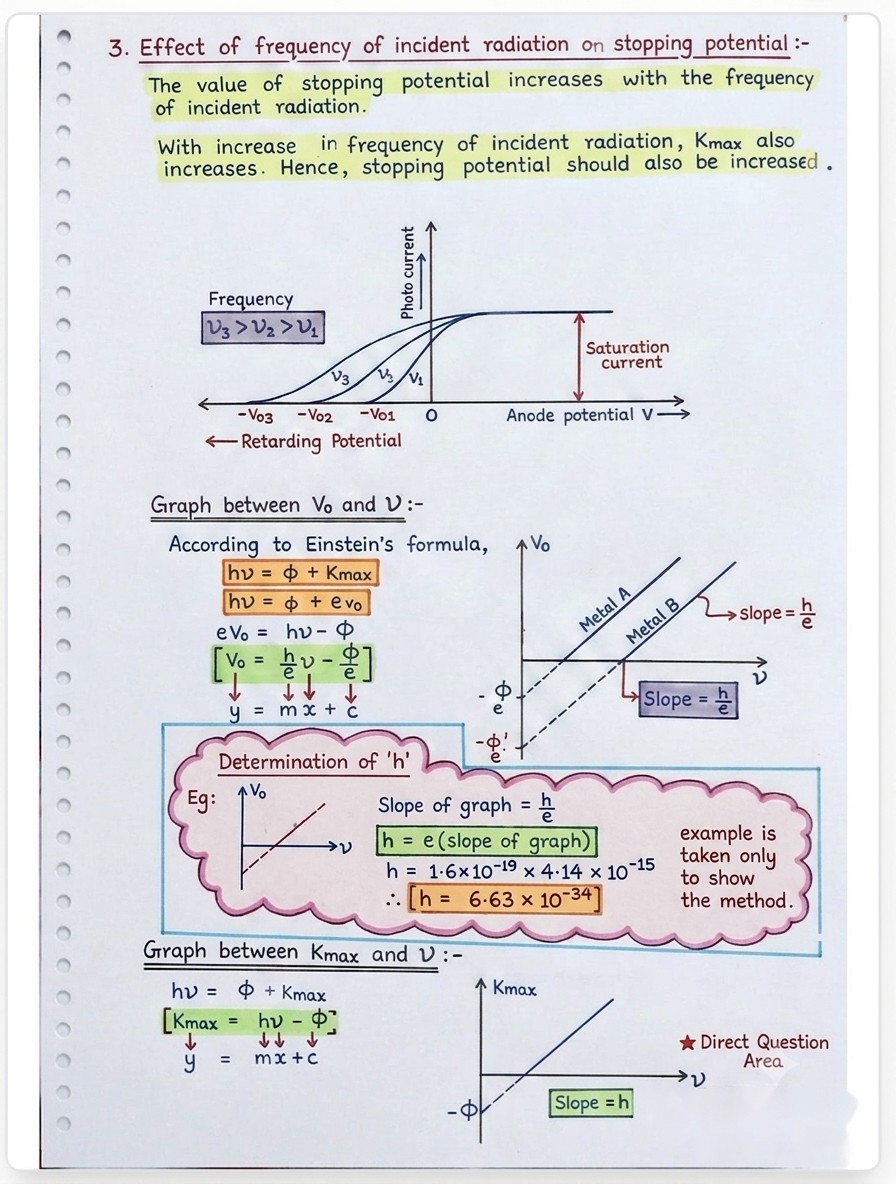 3. Effect of frequency of incident radiation on stopping potential :-
The value of stopping potential increases with the frequency
of incident radiation.
With increase in frequency of incident radiation, Kmax also
increases. Hence, stopping potential should also be increased.
Photo current
Frequency
ν3 > ν2 > ν1
ν3
ν3
ν1
Saturation
current
-Vo3
-Vo2
-Vo1
O
Anode potential V
Retarding Potential
Graph between Vo and ν :-
According to Einstein's formula,
hν = ϕ + Kmax
hν = ϕ + evo
eVo = hν - ϕ
[Vo = h/e ν - ϕ/e]
y = m x + c
Vo
Metal A
Metal B
slope = h/e
ν
Slope = h/e
- ϕ/e
-ϕ'/e
Determination of 'h'
Eg:
Vo
ν
Slope of graph = h/e
h = e (slope of graph)
h = 1.6×10⁻¹⁹ × 4.14 × 10⁻¹⁵
∴ [h = 6.63 × 10⁻³⁴]
example is
taken only
to show
the method.
Graph between Kmax and ν :-
hν = ϕ + Kmax
[Kmax = hν - ϕ]
y = mx + c
Kmax
ν
-ϕ
Slope = h
★ Direct Question
Area